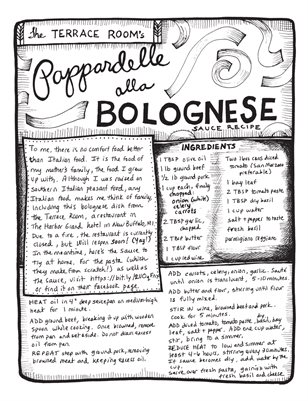 the TERRACE ROOM's
Pappardelle
alla
BOLOGNESE
SAUCE RECIPE
To me, there is no comfort food better
than Italian food. It is the food of
my mother's family, the food I grew
up with. Although I was raised on
Southern Italian peasant food, any
Italian food makes me think of family,
including this bolognese dish from
the Terrace Room, a restaurant in
The Harbor Hotel, in New Buffalo, MI.
Due to a fire, the restaurant is currently
closed, but still reopen soon! (Yay!)
In the meantime, here's the sauce to
try at home. For the pasta (which
they make from scratch!) as well as
the sauce, visit https://bit.ly/
or find it on their facebook page.
INGREDIENTS
1 TBSP olive oil
1 lb ground beef
½ lb ground pork
1 cup each, finely
chopped:
onion (white)
celery
carrots
2 TBSP garlic,
chopped
2 TBSP butter
1 TBSP flour
1 cup red wine
Two 16oz cans diced
tomato (San Marzano
preferable)
1 bay leaf
2 TBSP tomato paste
1 TBSP dry basil
1 cup water
salt + pepper to taste
fresh basil
parmigiano reggiano
HEAT oil in 4" deep saucepan on medium-high
heat for 1 minute.
ADD ground beef, breaking it up with wooden
spoon while cooking. Once browned, remove
from pan and set aside. Do not drain excess
oil from pan.
REPEAT step with ground pork, removing
browned meat and keeping excess oil.
ADD carrots, celery, onion, garlic. Sauté
until onion is translucent, 5-10 minutes.
ADD butter and flour, stirring until flour
is fully mixed.
STIR in wine, browned beef and pork.
Cook for 5 minutes.
ADD diced tomato, tomato paste, basil, bay
leaf, salt + pepper. Add one cup water,
stir, bring to a simmer.
REDUCE HEAT to low and simmer at
least 4-6 hours, stirring every 20 minutes.
If sauce becomes dry, add water by the
cup.
Serve over fresh pasta, garnish with
fresh basil and cheese.